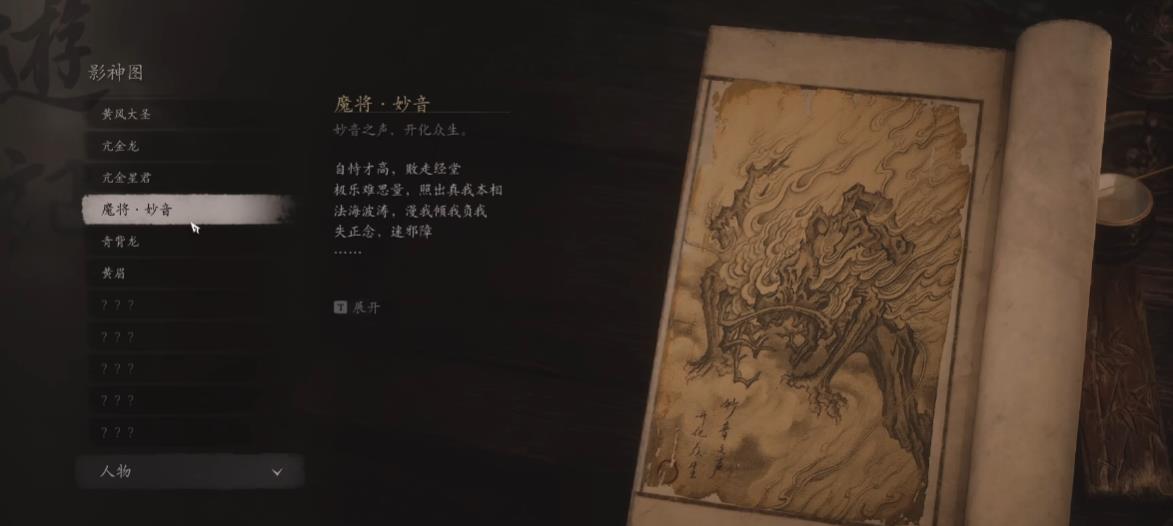 遊
記
影神图
黄风大圣
亢金龙
亢金星君
魔将·妙音
青背龙
黄眉
？？？
？？？
？？？
？？？
？？？
人物
魔将·妙音
妙音之声，开化众生。
自恃才高，败走经堂
极乐难思量，照出真我本相
法海波涛，漫我倾我负我
失正念，逮邪障
……
T 展开
妙音之声
开化众生